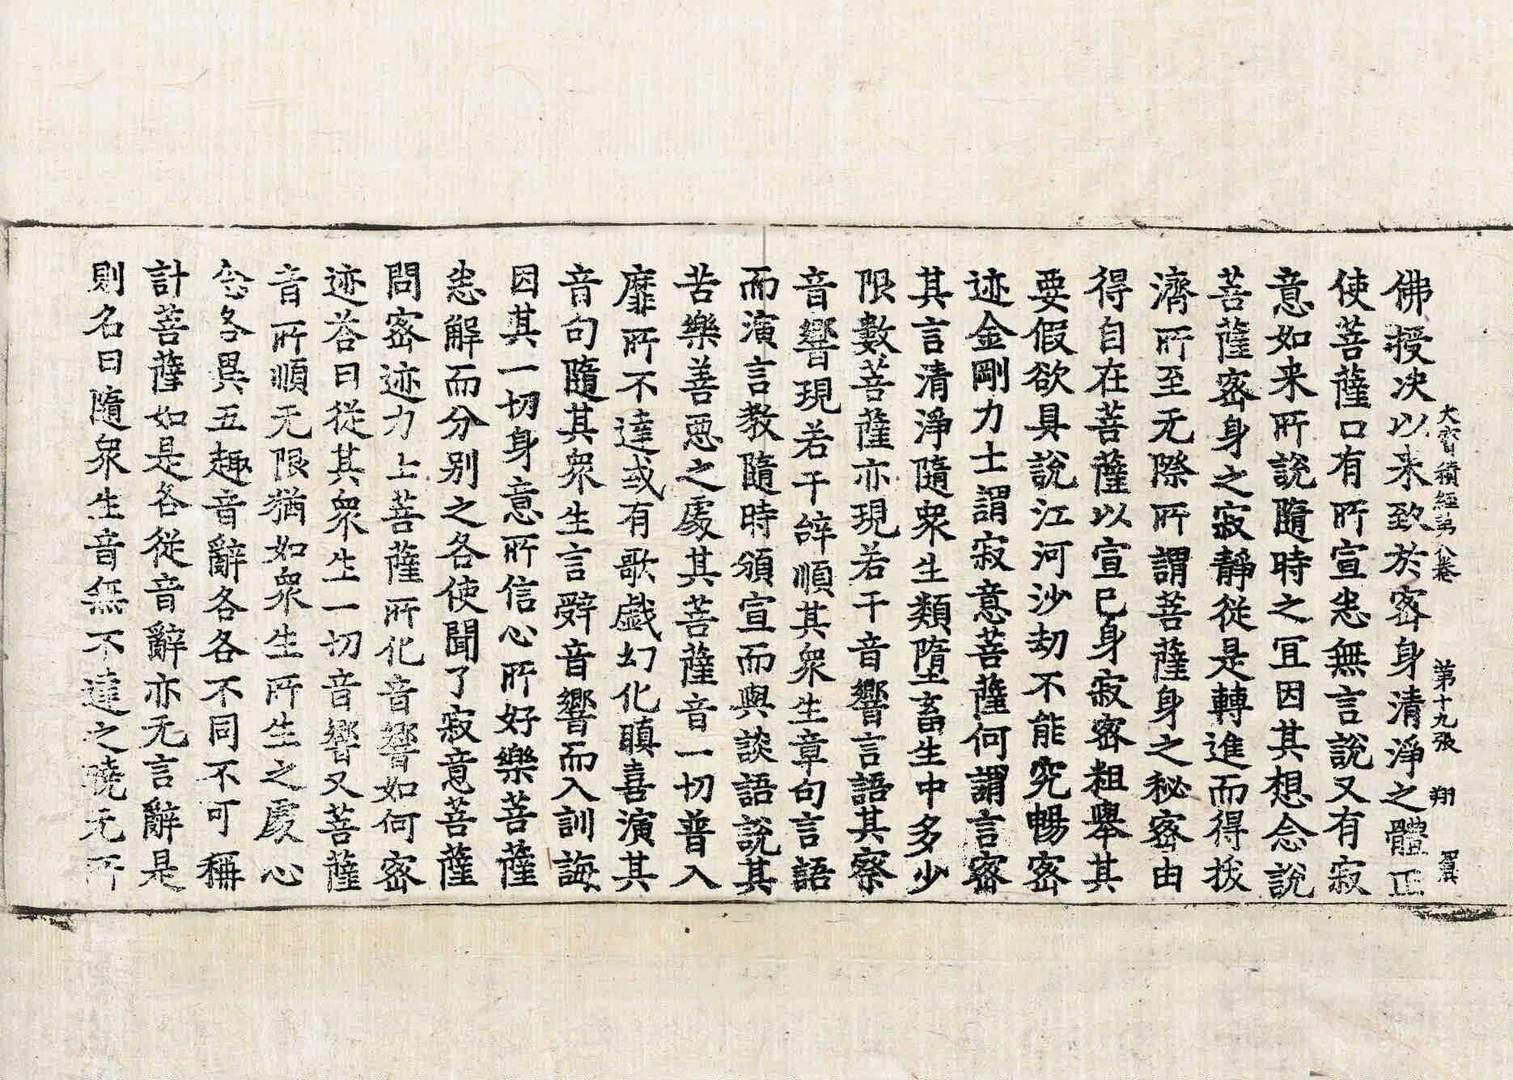 大寶積經第八卷 第十九張 翔
佛授決以來致於密身清淨之體正
使菩薩口有所宣悉無言說又有寂
意如来所說隨時之冝因其想念說
菩薩密身之寂靜從是轉進而得拔
濟所至无際所謂菩薩身之秘密由
得自在菩薩以宣已身寂密粗舉其
要假欲具說江河沙劫不能究暢密
迹金剛力士謂寂意菩薩何謂言密
其言清淨隨衆生類墮畜生中多少
限數菩薩亦現若干音響言語其察
音響現若干辝順其衆生章句言語
而演言教隨時頒宣而與談語說其
苦樂善惡之處其菩薩音一切普入
靡所不達或有歌戱幻化瞋喜演其
音句隨其衆生言辤音響而入訓誨
因其一切身意所信心所好樂菩薩
悉解而分別之各使聞了寂意菩薩
問密迹力士菩薩所化音響如何密
迹荅曰從其衆生一切音響又菩薩
音所順无限猶如衆生所生之處心
念各異五趣音辭各各不同不可稱
計菩薩如是各從音辭亦无言辭是
則名曰隨衆生音無不達之曉无所